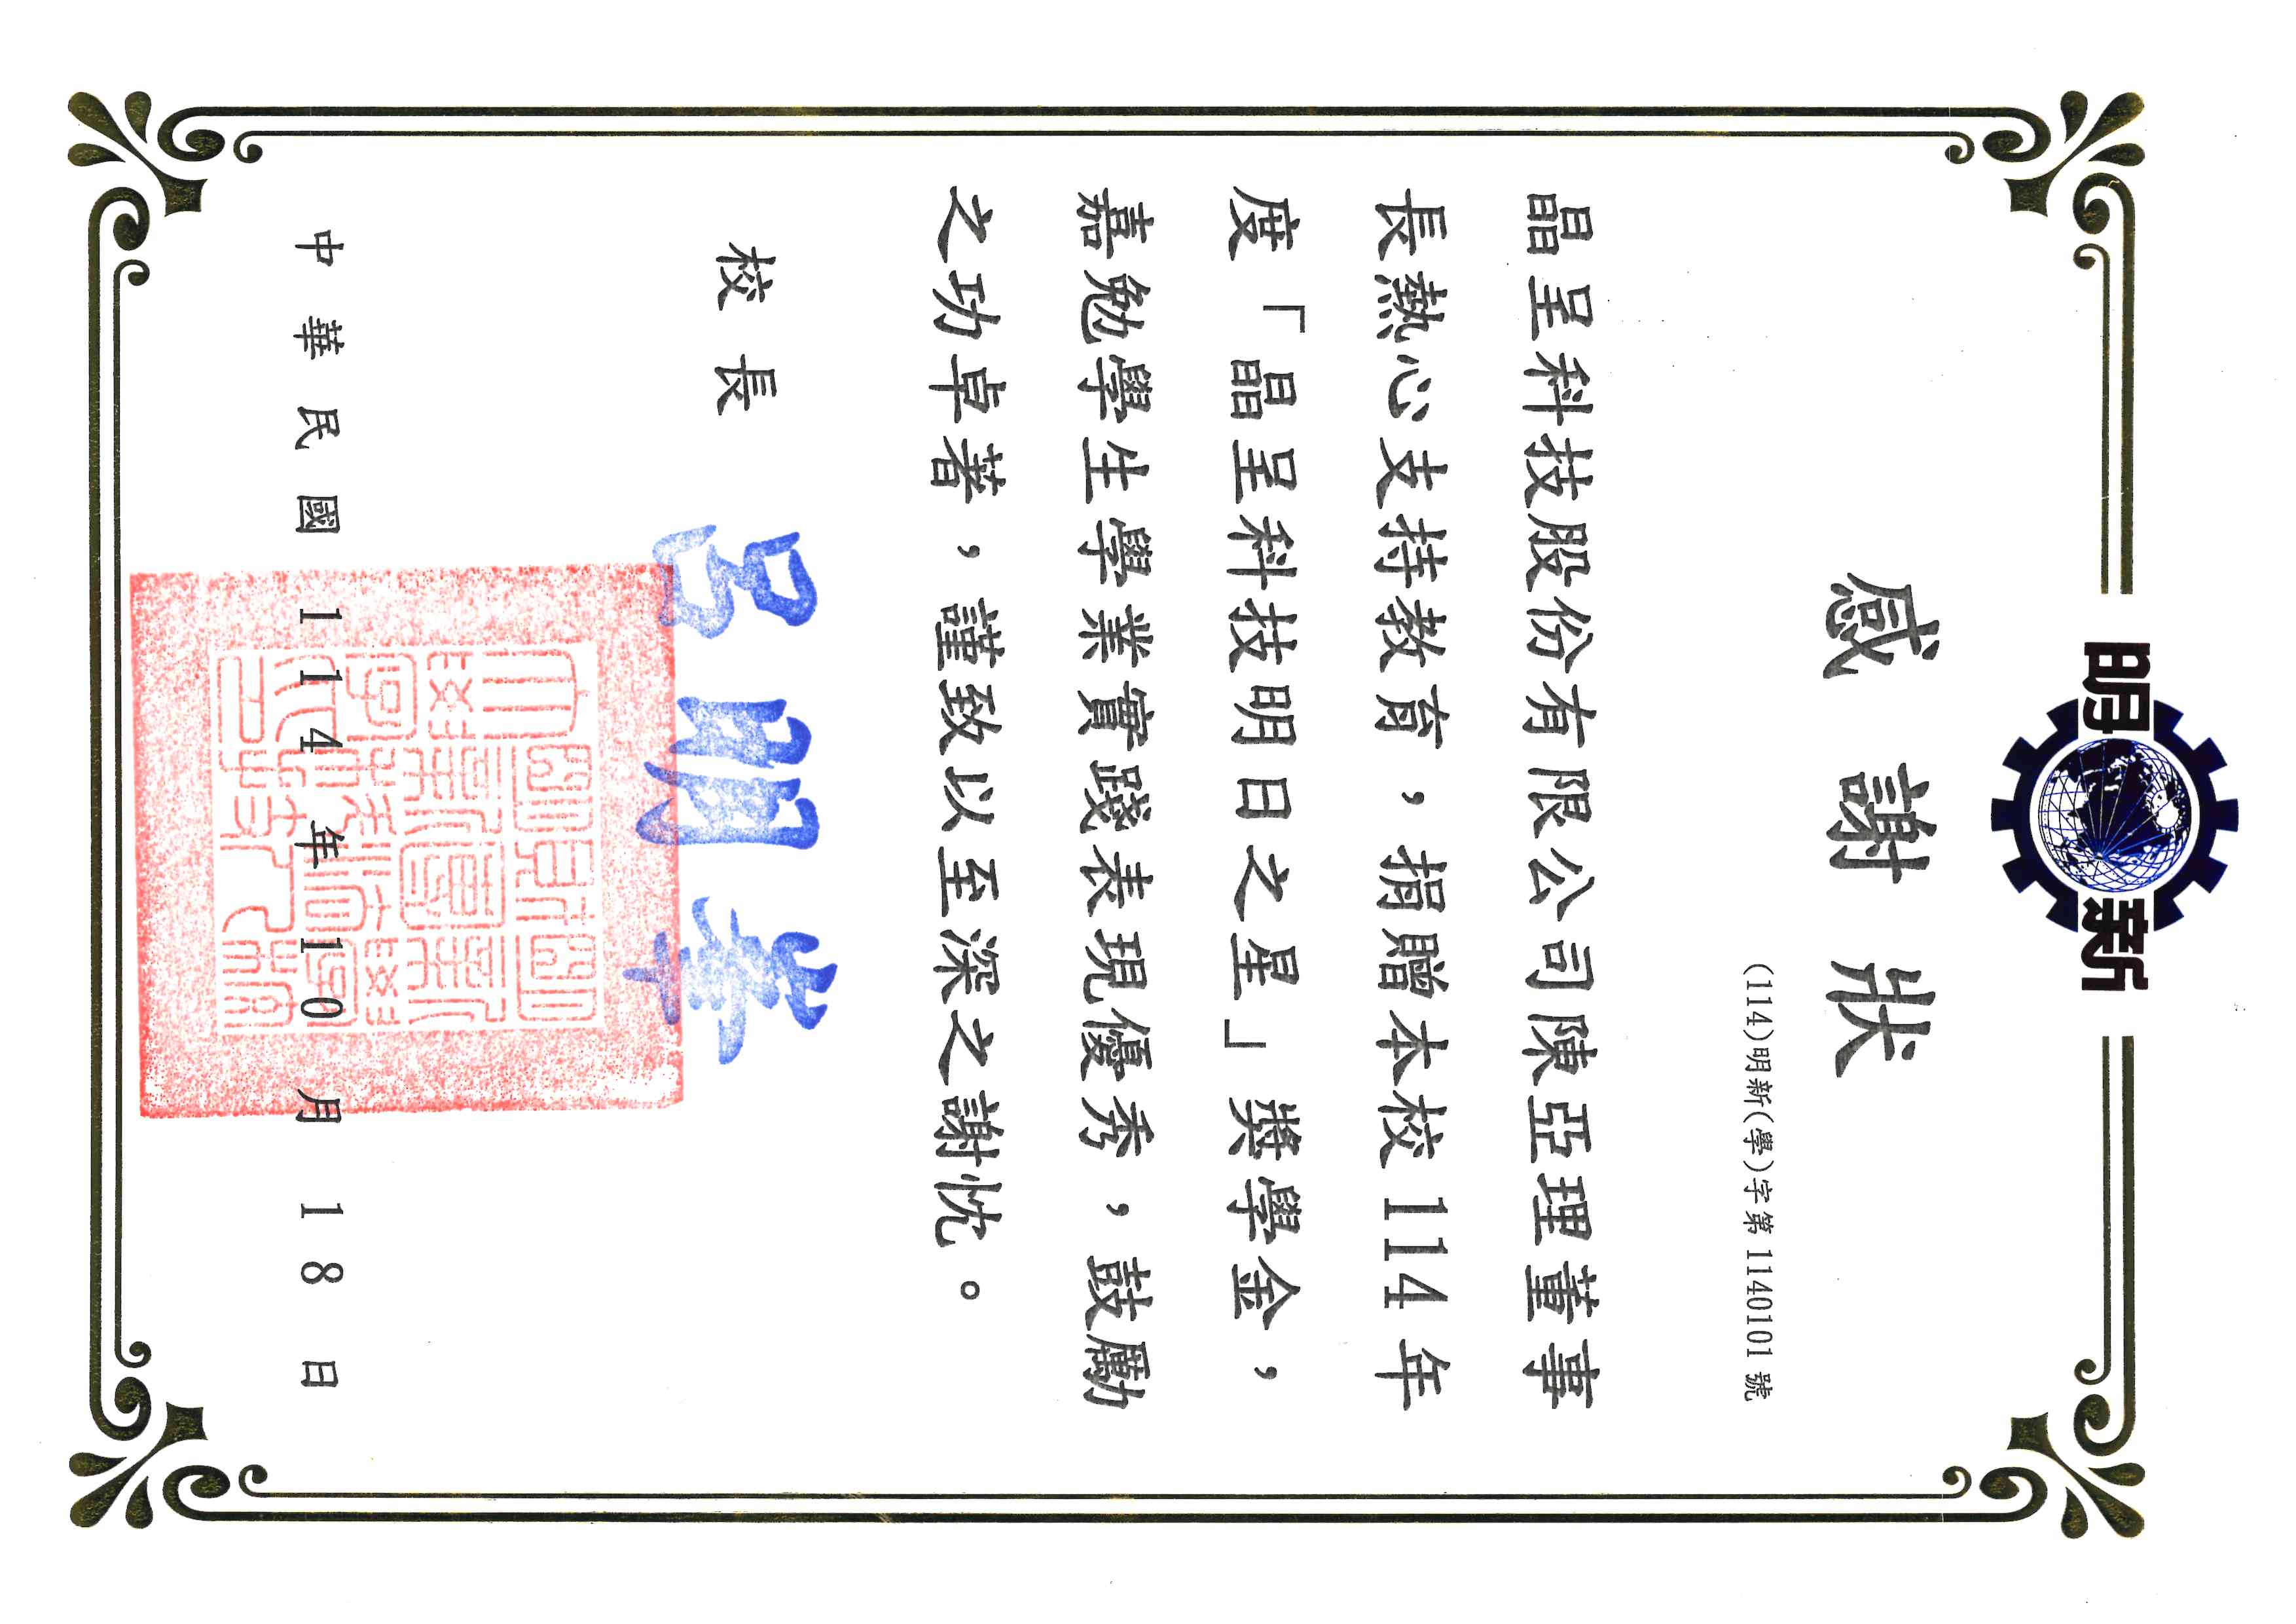 明新
感謝狀
(114)明新(學)字第1140101號
晶呈科技股份有限公司陳亞理董事
長熱心支持教育，捐贈本校114年
度「晶呈科技明日之星」獎學金，
嘉勉學生學業實踐表現優秀，鼓勵
之功卓著，謹致以至深之謝忱。
校長 呂明峯
中華民國114年10月18日